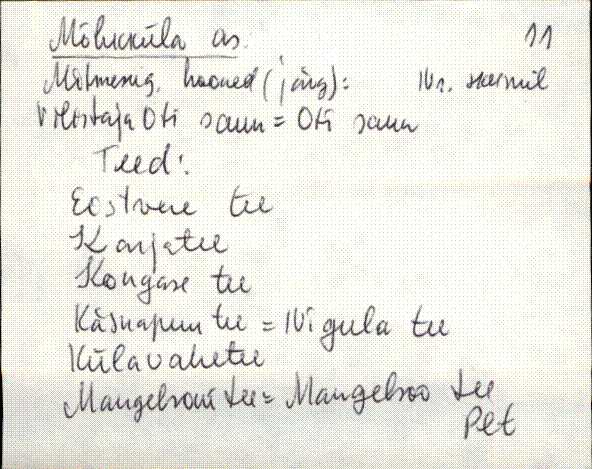 Mõhuküla as. 11
Mitmesug. hooned (järg):
Viilistaja Oti saun = Oti saun
Teed:
Eostvere tee
Karjatee
Kongase tee
Käsnapuu tee = Nigula tee
Külavahetee
Mangelsoni tee = Mangelsoo tee
Plt